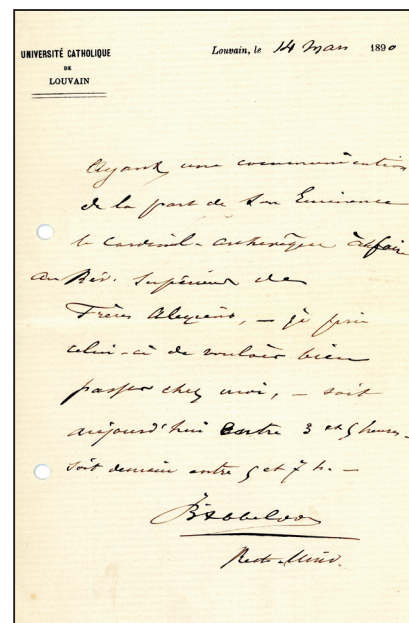 UNIVERSITÉ CATHOLIQUE
DE
LOUVAIN
Louvain, le 14 Mars 1890
Ayant une communication
de la part de Son Eminence
le Cardinal-archevêque à faire
au Rév. Supérieur des
Frères Alexiens, — je prie
celui-ci de vouloir bien
passer chez moi, — soit
aujourd'hui entre 3 et 5 heures —
soit demain entre 5 et 7 h. —
Rect. Univ.